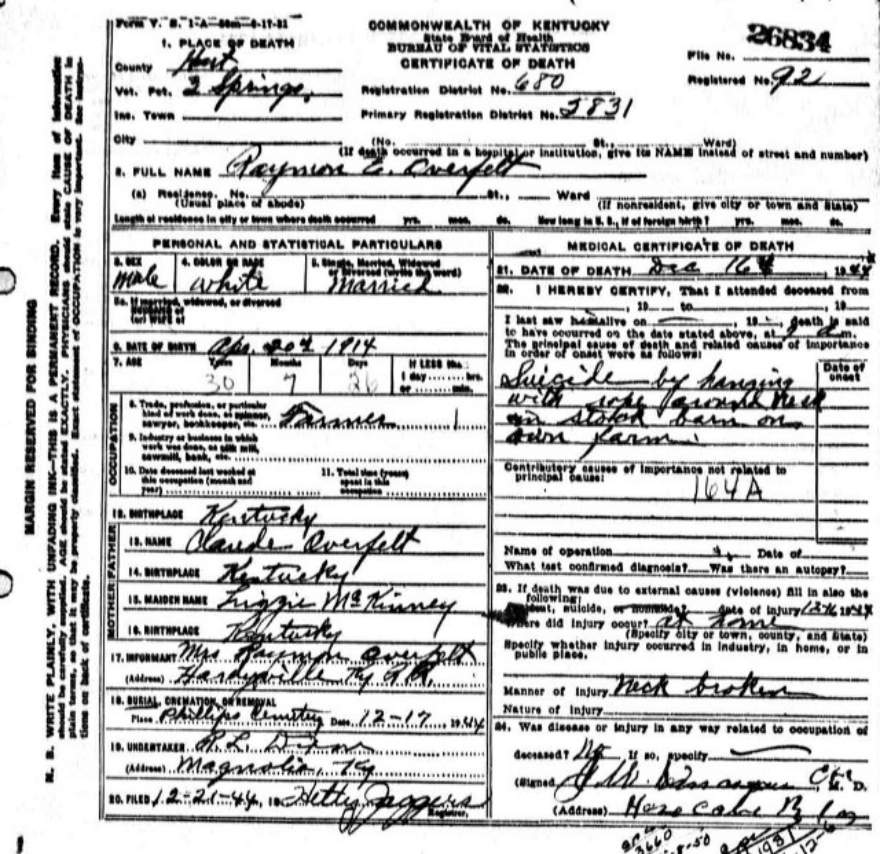 Form V. S. 1-A
COMMONWEALTH OF KENTUCKY
State Board of Health
BUREAU OF VITAL STATISTICS
CERTIFICATE OF DEATH
26834
File No.
Registered No. 92
1. PLACE OF DEATH
County Hart
Vot. Pct. 2 Springs
Inc. Town
City
Registration District No. 680
Primary Registration District No. 5831
(No. St., Ward)
(If death occurred in a hospital or institution, give its NAME instead of street and number)
2. FULL NAME Raymon E. Overfelt
(a) Residence. No. St., Ward
(Usual place of abode) (If nonresident, give city or town and State)
Length of residence in city or town where death occurred yrs. mos. ds. How long in U. S., if of foreign birth? yrs. mos. ds.
PERSONAL AND STATISTICAL PARTICULARS
3. SEX 4. COLOR OR RACE 5. Single, Married, Widowed
or Divorced (write the word)
Male White Married
5a. If married, widowed, or divorced
HUSBAND of
(or) WIFE of
6. DATE OF BIRTH Apr. 20th 1914
7. AGE Years Months Days If LESS than
1 day hrs.
or min.
30 7 26
OCCUPATION
8. Trade, profession, or particular
kind of work done, as spinner,
sawyer, bookkeeper, etc. Farmer
9. Industry or business in which
work was done, as silk mill,
sawmill, bank, etc.
10. Date deceased last worked at
this occupation (month and
year)
11. Total time (years)
spent in this
occupation
12. BIRTHPLACE Kentucky
FATHER
13. NAME Claude Overfelt
14. BIRTHPLACE Kentucky
MOTHER
15. MAIDEN NAME Lizzie McKinney
16. BIRTHPLACE Kentucky
17. INFORMANT Mrs Raymon Overfelt
(Address) Hardyville Ky
18. BURIAL, CREMATION, OR REMOVAL
Place Phillips Cemetery Date 12-17, 1944
19. UNDERTAKER
(Address) Magnolia, Ky
20. FILED 12-21-44, 19 Hetty Jaggers
Registrar.
MEDICAL CERTIFICATE OF DEATH
21. DATE OF DEATH Dec 16th, 1944
22. I HEREBY CERTIFY, That I attended deceased from
, 19 to , 19
I last saw h alive on , 19 , death is said
to have occurred on the date stated above, at m.
The principal cause of death and related causes of importance
in order of onset were as follows:
Date of
onset
Suicide by hanging
with rope around neck
in stock barn on
own farm.
Contributory causes of importance not related to
principal cause:
164A
Name of operation Date of
What test confirmed diagnosis? Was there an autopsy?
23. If death was due to external causes (violence) fill in also the
following:
suicide, or homicide? date of injury 1944
did injury occur? at home
(Specify city or town, county, and State)
Specify whether injury occurred in industry, in home, or in
public place.
Manner of injury Neck broken
Nature of injury
24. Was disease or injury in any way related to occupation of
deceased? No If so, specify
(Signed , M. D.
(Address)
MARGIN RESERVED FOR BINDING
N. B. WRITE PLAINLY, WITH UNFADING INK—THIS IS A PERMANENT RECORD. Every item of information
should be carefully supplied. AGE should be stated EXACTLY. PHYSICIANS should state CAUSE OF DEATH in
plain terms, so that it may be properly classified. Exact statement of OCCUPATION is very important. See instruc-
tions on back of certificate.